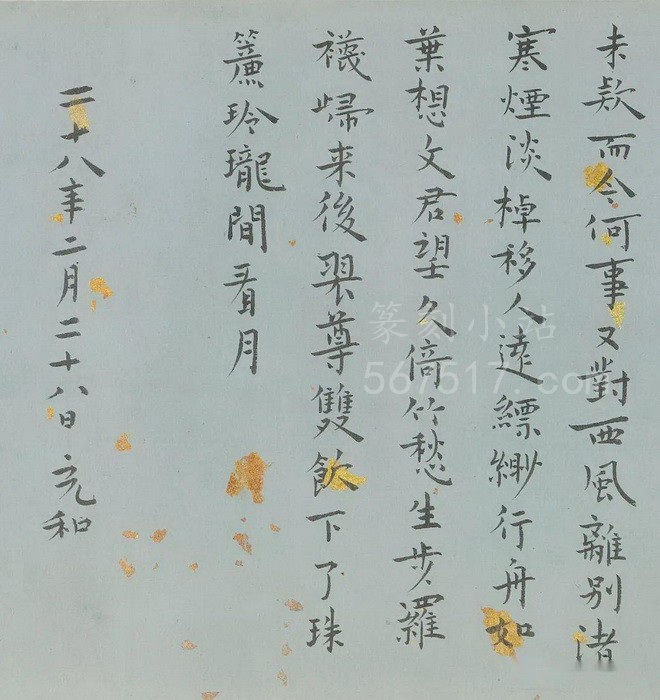 未款而今何事又對西風離別渚
寒煙淡棹移人遠縹緲行舟如
葉想文君望久倚竹愁生步羅
襪歸来後翠尊雙飲下了珠
簾玲瓏閒看月
二十八年二月二十八日充和
篆刻小站
567517.com